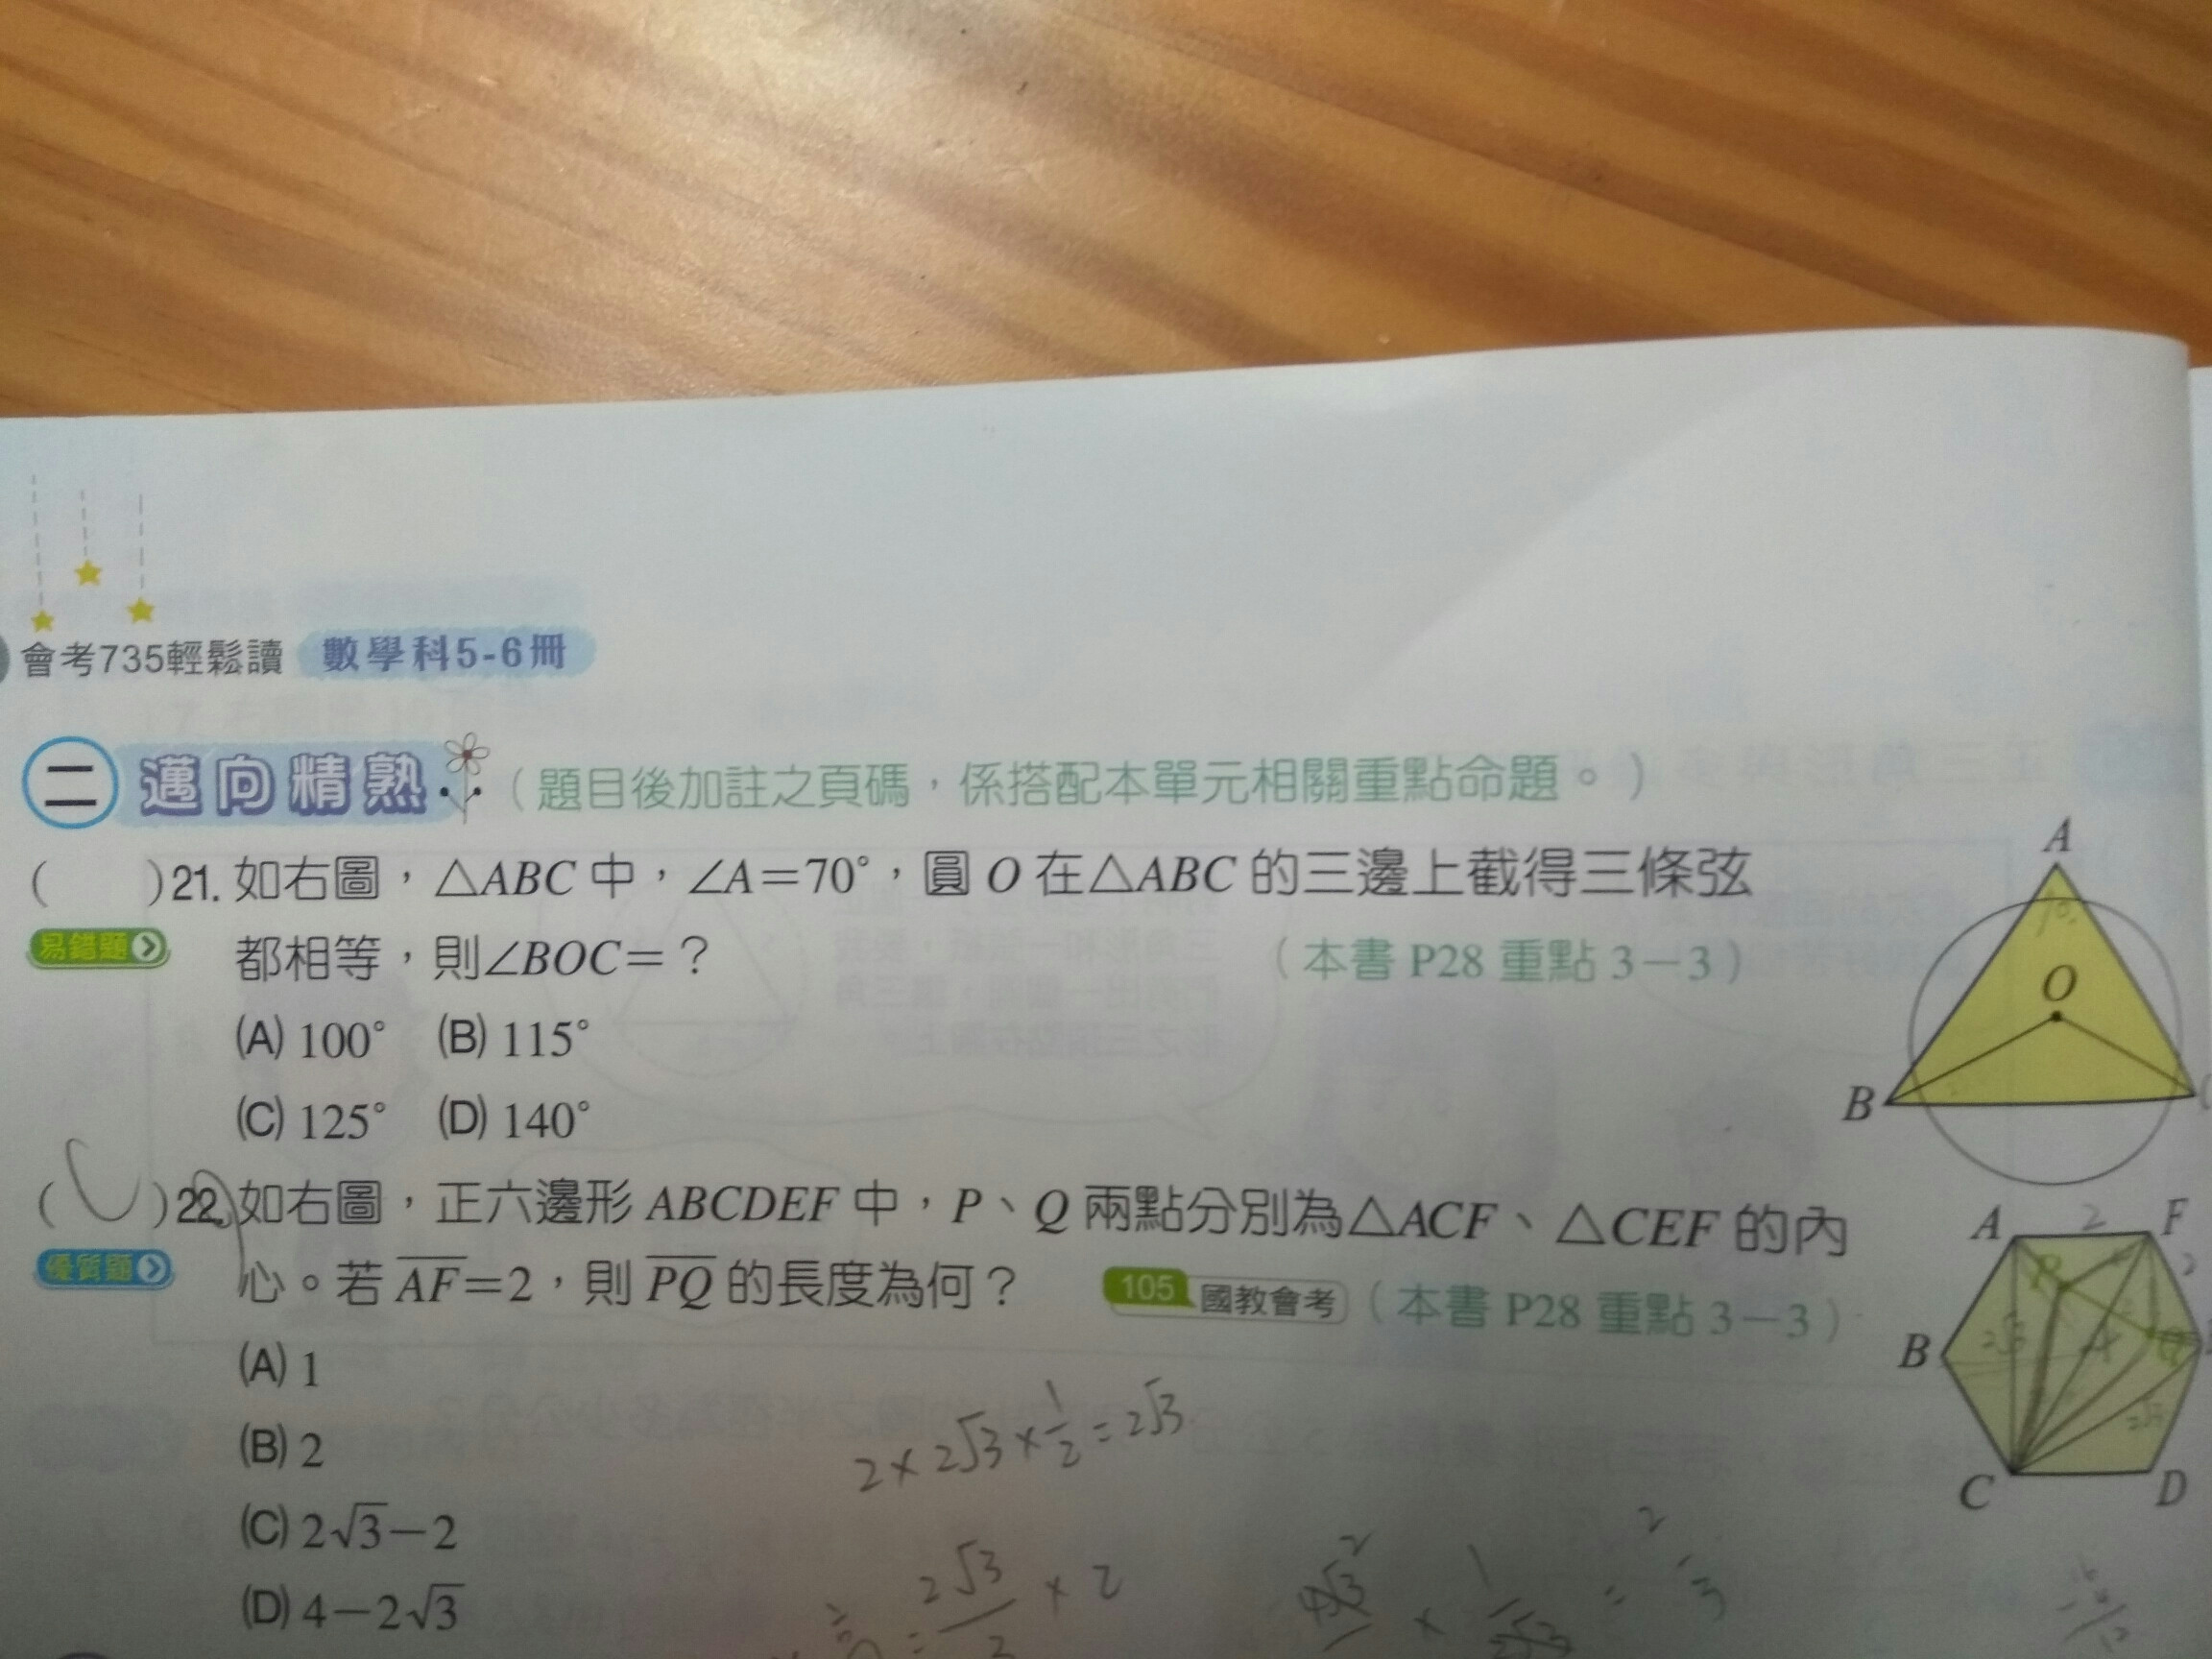 會考735輕鬆讀 數學科5-6冊
二 邁向精熟 (題目後加註之頁碼,係搭配本單元相關重點命題。)
( )21. 如右圖,△ABC 中,∠A=70°,圓 O 在△ABC 的三邊上截得三條弦
易錯題 都相等,則∠BOC=? (本書 P28 重點 3-3)
(A) 100° (B) 115°
(C) 125° (D) 140°
A
O
B
( )22. 如右圖,正六邊形 ABCDEF 中,P、Q 兩點分別為△ACF、△CEF 的內
優質題 心。若 AF=2,則 PQ 的長度為何? 105 國教會考 (本書 P28 重點 3-3)
(A) 1
(B) 2
(C) 2√3-2
(D) 4-2√3
A 2 F
P
B 2√3 Q
C D
2×2√3×1/2=2√3
2√3 × 2